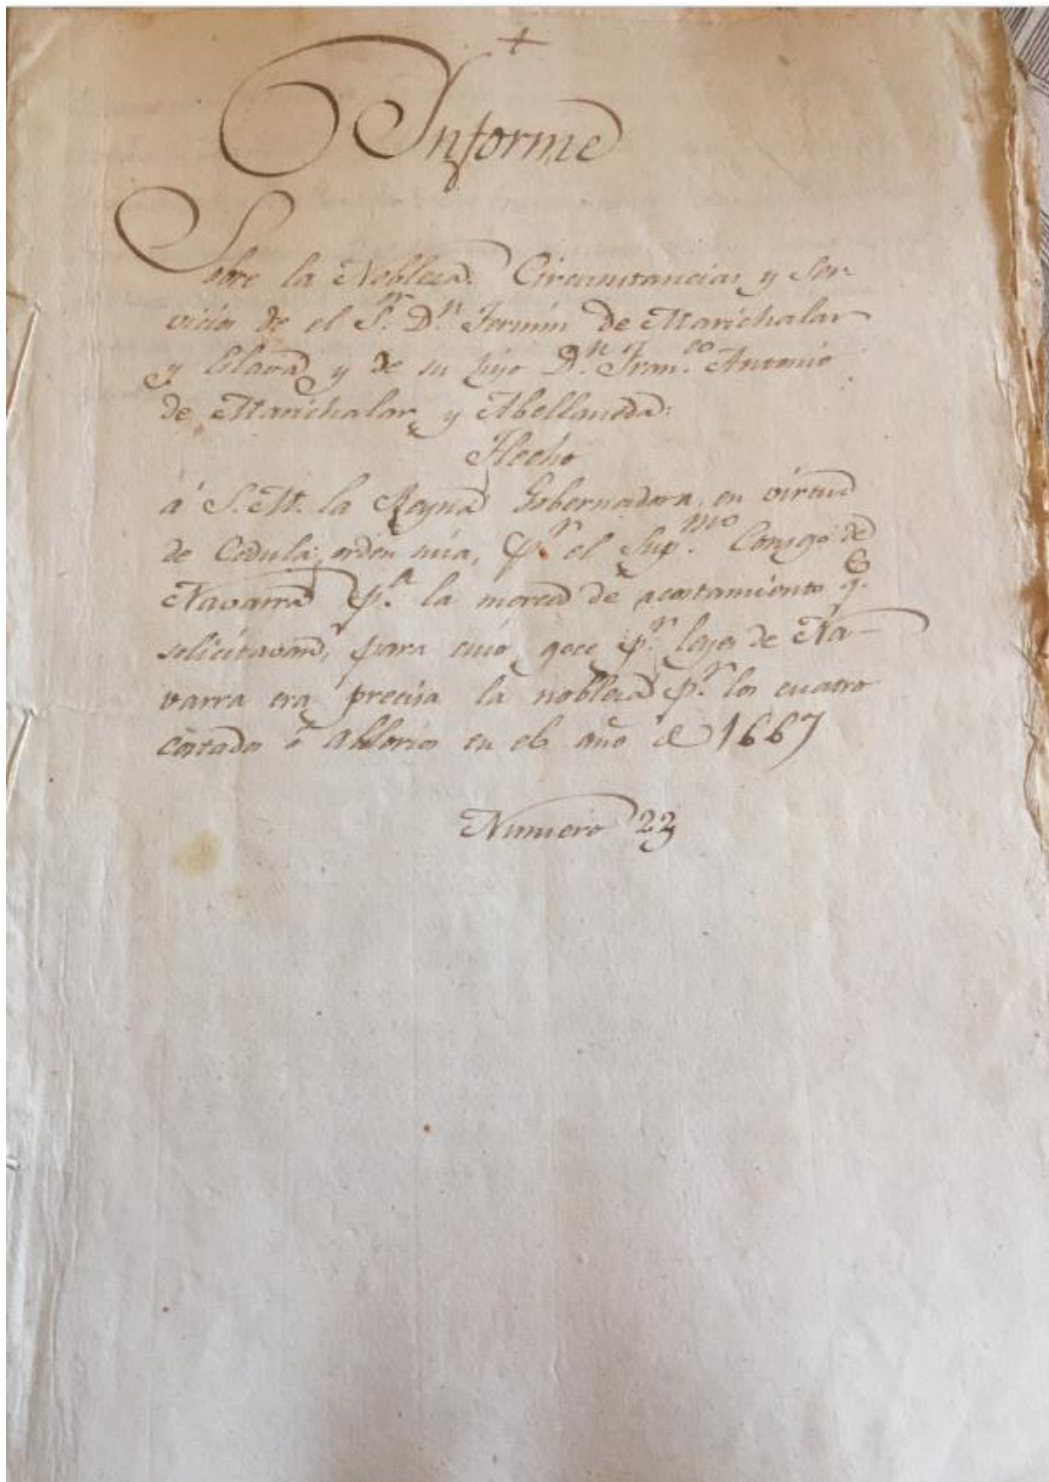 +
Informe
Sobre la Nobleza. Circunstancias, y Ser-
vicios de el S.r D.n Fermin de Marichalar
y Eslava, y de su hijo D.n Fran.co Antonio
de Marichalar, y Abellaneda:
Hecho
á S. M. la Reyna Gobernadora, en virtud
de Cedula, orden suia, p.r el Sup.mo Consejo de
Navarra p.a la merced de acostamiento q.e
solicitavan, para cuio goce p.r leyes de Na-
varra era precisa la nobleza p.r los cuatro
costados ó abolorios en el año de 1667
Numero 22